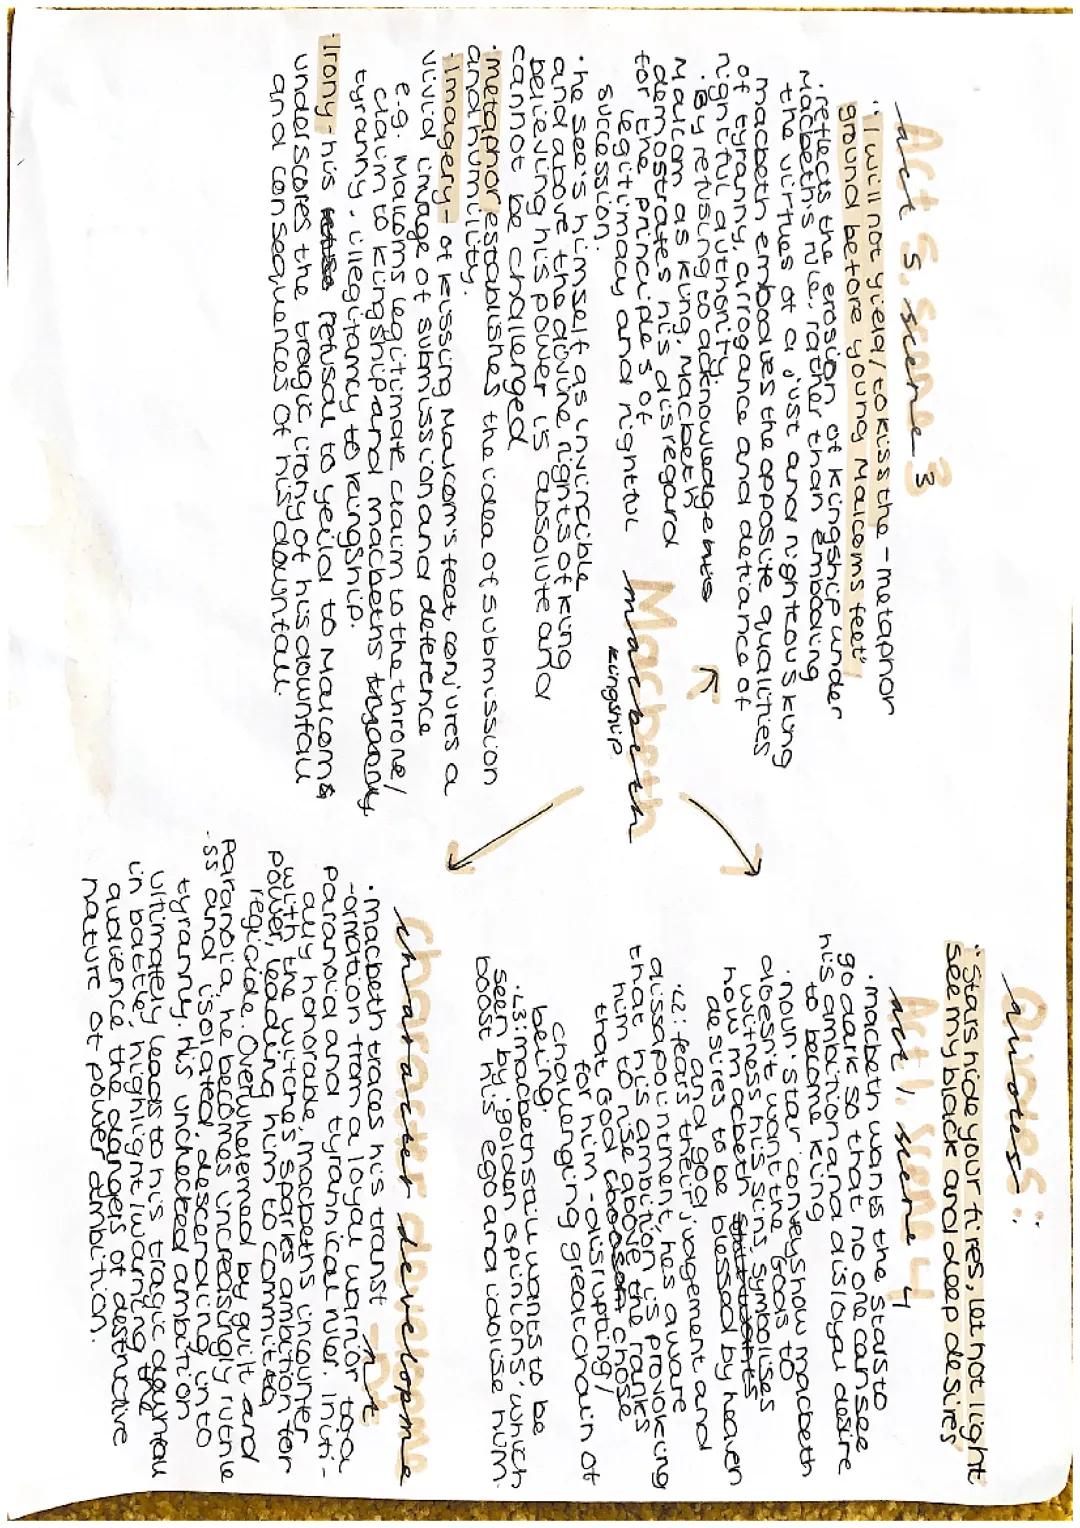 Act 5, scene 3
"I will not yield/to kiss the - metaphor
ground before young Malcoms feet"
· reflects the erosion of kingship under
Macbeth's rule. rather than embodying
the virtues of a just and righteous king
macbeth embodies the opposite qualities
of tyranny, arrogance and defiance of
rightful authority.
· By refusing to acknowledge his
Malcom as king, Macbeth
demostrates his disregard
for the principles of
legitimacy and rightful
succession.
· he see's himself as invincible
and above the divine rights of king
believing his power is absolute and
cannot be challenged
· metaphor establishes the idea of submission
and humility.
· Imagery - of kissing Malcom's feet conjures a
vivid image of submission and deference
e.g. Malcoms legitimate claim to the throne/
claim to kingship and macbeths tryanny
tyranny. illegitamcy to kingship.
Irony - his refusal to yeild to Malcom &
underscores the tragic irony of his downfall
and consequences of his downfall.
Macbeth
kingship
Quotes:
"Stars hide your fires, let not light
see my black and deep desires
Act 1, scene 4
· macbeth wants the stars to
go dark so that no one can see
his ambition and disloyal desire
to become king
· noun: star conveys how macbeth
doesn't want the Gods to
witness his sins, symbolises
how macbeth
desires to be blessed by heaven
and god
· L2: fears their judgement and
dissapointment, hes aware
that his ambition is provoking
him to rise above the ranks
that God choosen chose
for him - disrupting/
challenging great chain of
being.
· L3: macbeth still wants to be
seen by 'golden opinions' which
boost his ego and idolise him.
Character developme
-nt
· macbeth traces his transf
-ormation from a loyal warrior to a
paranoid and tyrannical ruler. initi-
ally honorable, macbeths incounter
with the witches sparks ambition for
power, leading him to commit
regicide. Overwhelmed by guilt and
paranoia, he becomes increasingly ruthle
-ss and isolated, descending into
tyranny. His unchecked ambition
ultimately leads to his tragic downfall
in battle, highlight/warning the
audience the dangers of destructive
nature of power ambition.